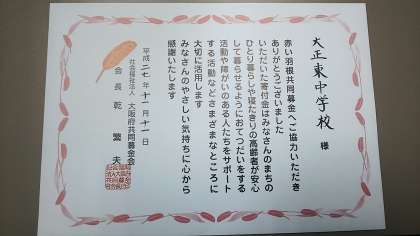 大正東中学校 様
赤い羽根共同募金へご協力いただき
ありがとうございました
いただいた寄付金はみなさんのまちの
ひとり暮らしや寝たきりの高齢者が安心
して暮らせるようにおてつだいをする
活動や障がいのある人たちをサポート
する活動などさまざまなところに
大切に活用します
みなさんのやさしい気持ちに心から
感謝いたします
平成二七年十一月十一日
社会福祉法人 大阪府共同募金会
会長 乾 繁夫